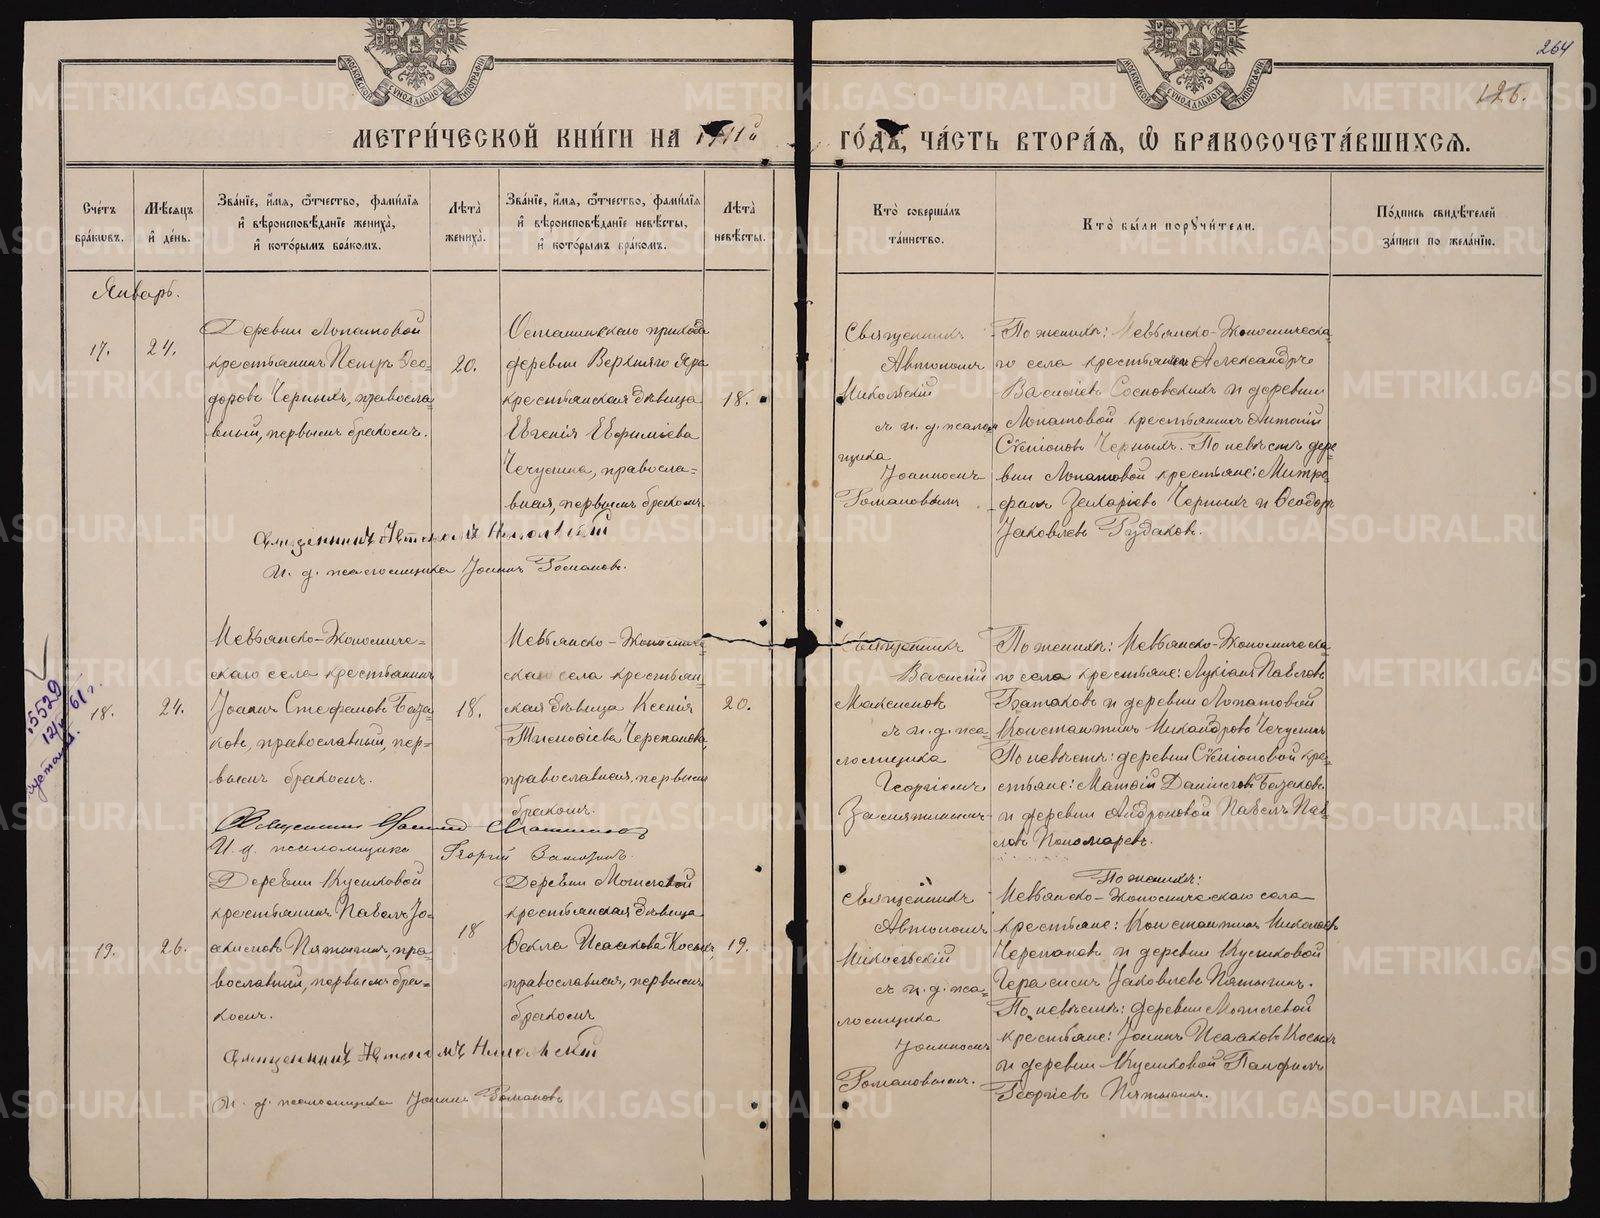 МОСКОВСКОЙ СѴНОДАЛЬНОЙ ТИПОГРАФІИ
МОСКОВСКОЙ СѴНОДАЛЬНОЙ ТИПОГРАФІИ
264
126.
МЕТРИ́ЧЕСКОЙ КНИ́ГИ НА 1911й ГО́ДЪ, ЧА́СТЬ ВТОРА́Ѧ, Ѽ БРАКОСОЧЕТА́ВШИХСѦ.
Сче́тъ бра́кѡвъ.
Мѣ́сѧцъ и҆ де́нь.
Зва́нїе, и҆́мѧ, ѻ҆́тчество, фами́лїѧ и҆ вѣроисповѣ́данїе жениха̀, и҆ кото́рымъ бра́комъ.
Лѣ́та̀ жениха̀.
Зва́нїе, и҆́мѧ, ѻ҆́тчество, фами́лїѧ и҆ вѣроисповѣ́данїе невѣ́сты, и҆ кото́рымъ бра́комъ.
Лѣ́та̀ невѣ́сты.
Кто̀ соверша́лъ та́инство.
Кто̀ бы́ли порꙋчи́тели.
По́дпись свидѣ́телей за́писи по жела́нїю.
Январь.
17.
24.
Деревни Лопатовой
крестьянинъ Петръ Ѳео-
доровъ Черныхъ, правосла-
вный, первымъ бракомъ.
20.
Осташинскаго прихода
деревни Верхняго Яра
крестьянская дѣвица
Евгенія Ефимьева
Чечулина, правосла-
вная, первымъ бракомъ.
18.
Священникъ
Автономъ
Никольскій
съ и. д. псалом
щика
Іоанномъ
Романовымъ
По женихѣ: Невьянско-Экономическа
го села крестьянинъ Александръ
Васильевъ Сосновскихъ и деревни
Лопатовой крестьянинъ Антоній
Сѵмѵоновъ Черныхъ. По невѣстѣ дере
вни Лопатовой крестьяне: Митро
фанъ Захаріевъ Черныхъ и Ѳеодоръ
Іаковлевъ Рудаковъ.
Священникъ Автономъ Никольскій
И. д. псаломщика Іоаннъ Романовъ.
15529
61 г.
18.
24.
Невьянско-Экономиче-
скаго села крестьянинъ
Іоаннъ Стефановъ База-
ковъ, православный, пер-
вымъ бракомъ.
18.
Невьянско-Экономиче-
скаго села крестьян-
ская дѣвица Ксенія
Тимоѳіева Черепанова,
православная, первымъ
бракомъ.
20.
Священникъ
Василій
Максимовъ
съ и. д. пса-
ломщика
Георгіемъ
По женихѣ: Невьянско-Экономическа
го села крестьяне: Лукіанъ Павловъ
и деревни Лопатовой
Константинъ Никандровъ Чечулинъ
По невѣстѣ: деревни Сѵмѵоновой кре-
стьяне: Матѳій Даниловъ Базаковъ
и деревни Андроновой Павелъ Пав
ловъ Пономаревъ.
Священникъ Василій Максимовъ
И. д. псаломщика Георгій
19.
26.
Деревни Кусиковой
крестьянинъ Павелъ Іо-
акимовъ Пятыгинъ, пра-
вославный, первымъ бра-
комъ.
18
Деревни Могилевой
крестьянская дѣвица
Ѳекла Исаакова Косыхъ,
православная, первымъ
бракомъ
19.
Священникъ
Автономъ
Никольскій
съ и. д. пса-
ломщика
Іоанномъ
Романовымъ.
По женихѣ:
Невьянско-Экономическаго села
крестьяне: Константинъ Николаевъ
Черепановъ и деревни Кусиковой
Герасимъ Іаковлевъ Пятыгинъ.
По невѣстѣ: деревни Могилевой
крестьяне: Іоаннъ Исааковъ Косыхъ
и деревни Кусиковой Панфилъ
Георгіевъ Пятыгинъ.
Священникъ Автономъ Никольскій
И. д. псаломщика Іоаннъ Романовъ
METRIKI.GASO-URAL.RU